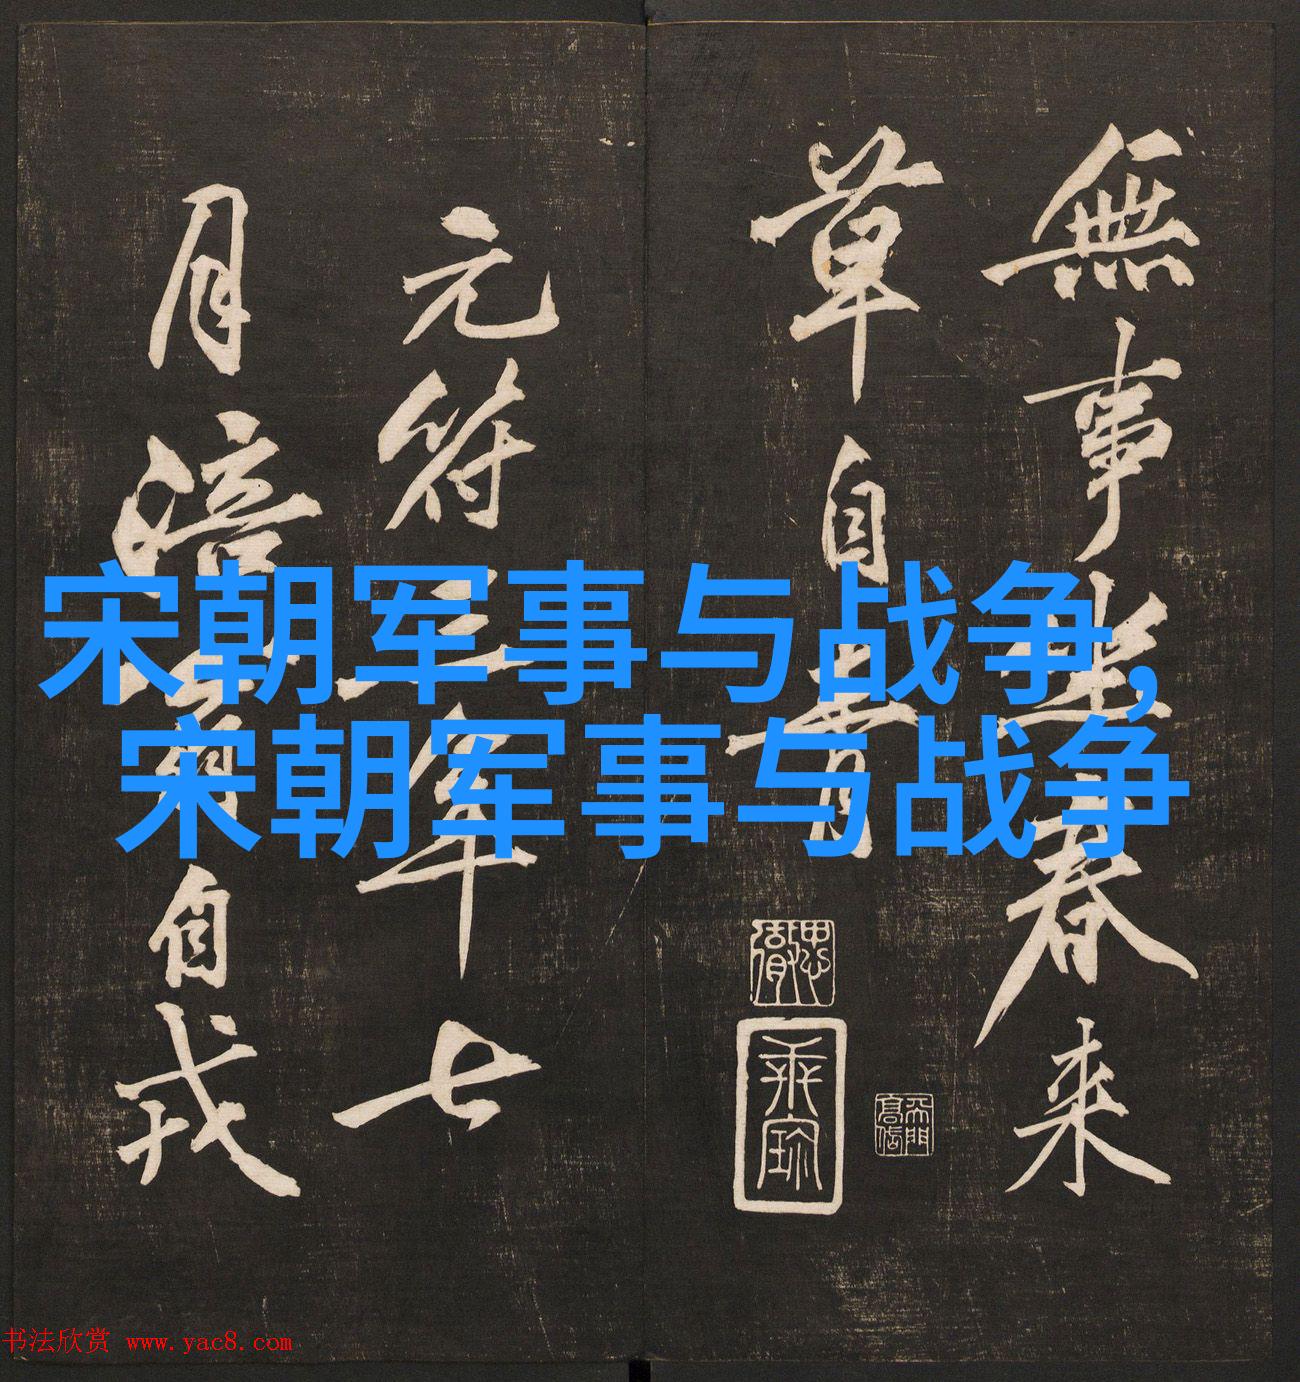 無事坐春来
草自青
元符三年七
月涪翁自戎
宋朝军事与战争,
宋朝军事与战争
书法欣赏 www.yac8.com